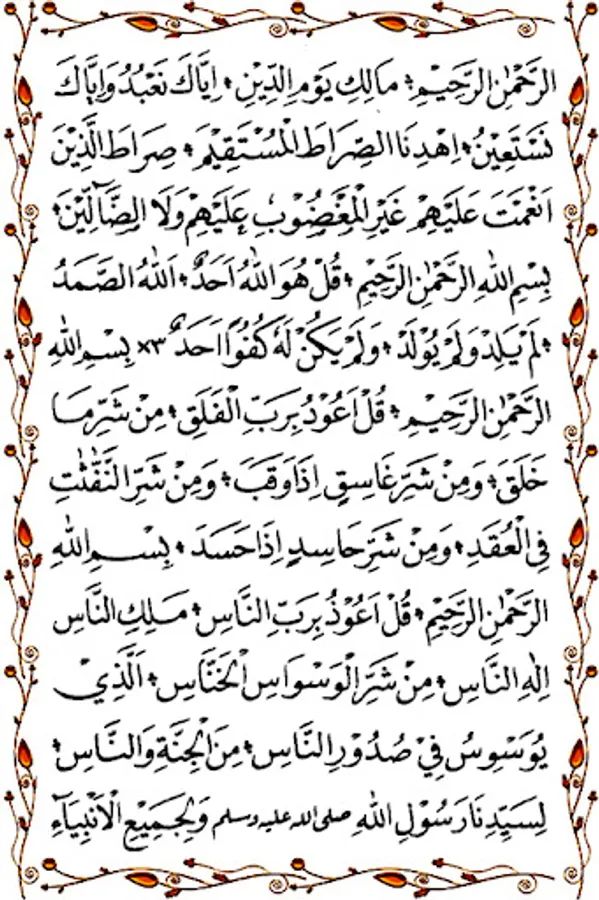 الرَّحْمٰنِ الرَّحِيْمِ * مَالِكِ يَوْمِ الدِّيْنِ * اِيَّاكَ نَعْبُدُ وَاِيَّاكَ
نَسْتَعِيْنُ * اِهْدِنَا الصِّرَاطَ الْمُسْتَقِيْمَ * صِرَاطَ الَّذِيْنَ
اَنْعَمْتَ عَلَيْهِمْ غَيْرِ الْمَغْضُوْبِ عَلَيْهِمْ وَلَا الضَّآلِّيْنَ *
بِسْمِ اللهِ الرَّحْمٰنِ الرَّحِيْمِ * قُلْ هُوَ اللهُ اَحَدٌ * اَللهُ الصَّمَدُ
* لَمْ يَلِدْ وَلَمْ يُوْلَدْ * وَلَمْ يَكُنْ لَهٗ كُفُوًا اَحَدٌ ×٣ بِسْمِ اللهِ
الرَّحْمٰنِ الرَّحِيْمِ * قُلْ اَعُوْذُ بِرَبِّ الْفَلَقِ * مِنْ شَرِّ مَا
خَلَقَ * وَمِنْ شَرِّ غَاسِقٍ اِذَا وَقَبَ * وَمِنْ شَرِّ النَّفّٰثٰتِ
فِي الْعُقَدِ * وَمِنْ شَرِّ حَاسِدٍ اِذَا حَسَدَ * بِسْمِ اللهِ
الرَّحْمٰنِ الرَّحِيْمِ * قُلْ اَعُوْذُ بِرَبِّ النَّاسِ * مَلِكِ النَّاسِ
اِلٰهِ النَّاسِ * مِنْ شَرِّ الْوَسْوَاسِ الْخَنَّاسِ * اَلَّذِيْ
يُوَسْوِسُ فِيْ صُدُوْرِ النَّاسِ * مِنَ الْجِنَّةِ وَالنَّاسِ *
لِسَيِّدِنَا رَسُوْلِ اللهِ صلى الله عليه وسلم وَلِجَمِيْعِ الْاَنْبِيَآءِ